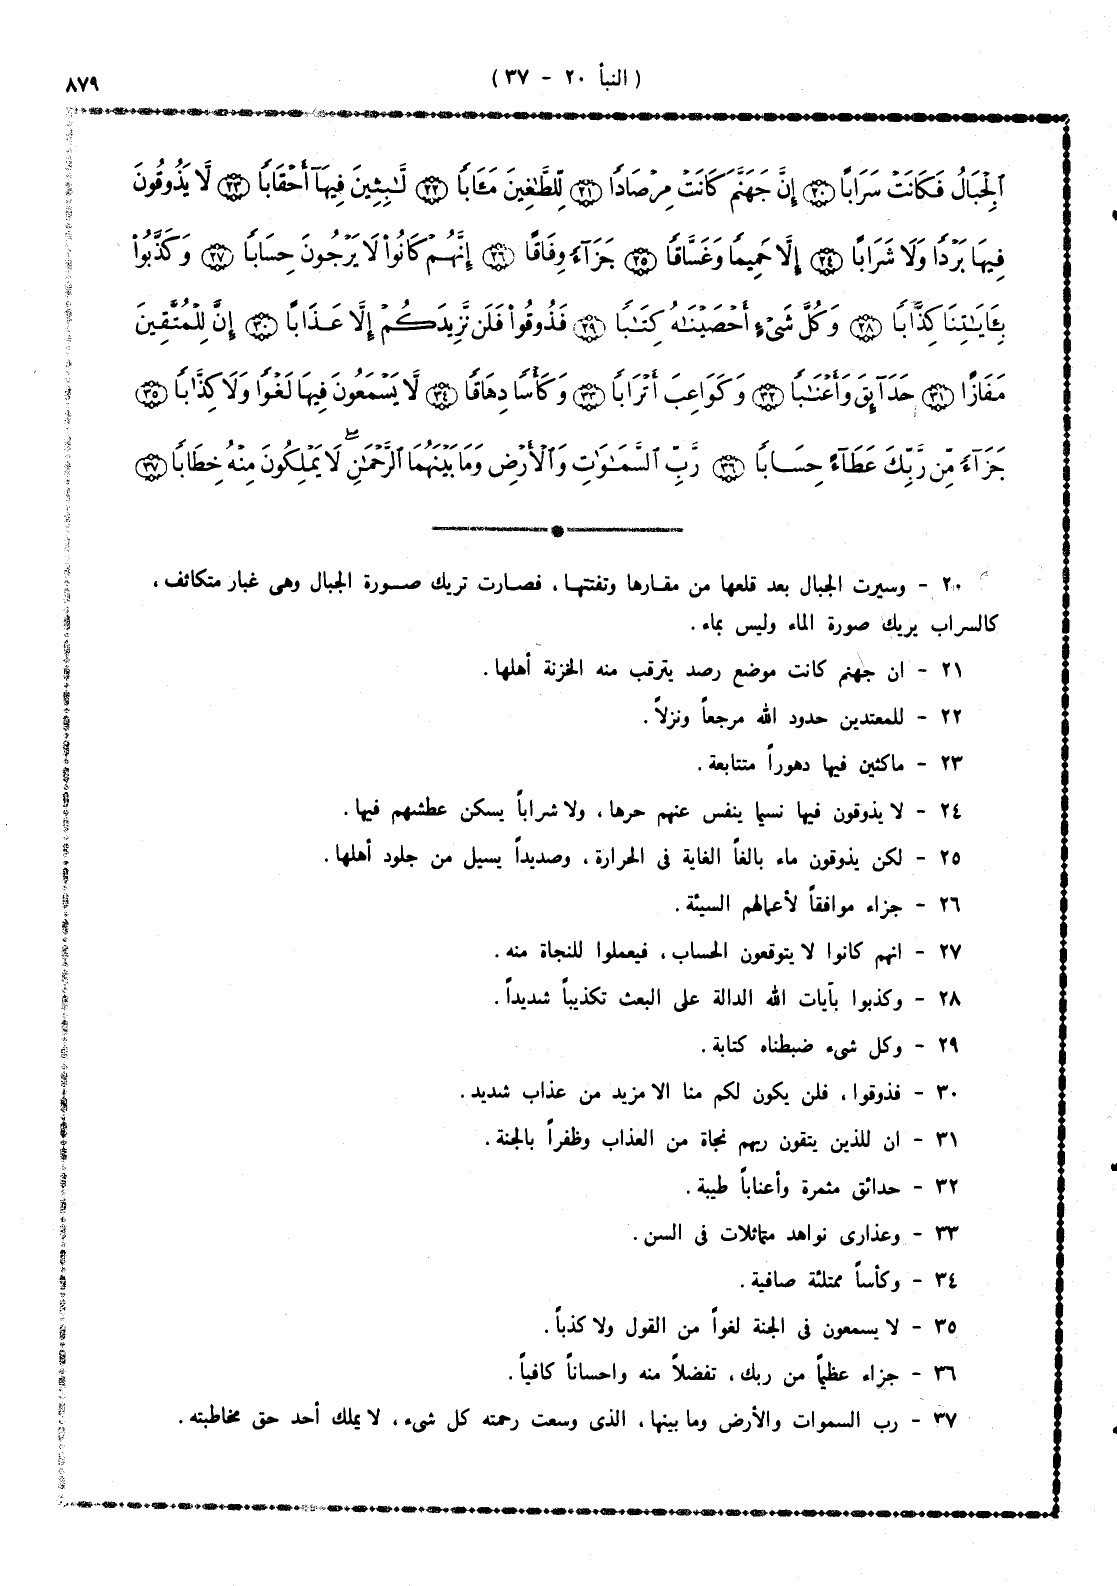 (النبأ ٢٠ - ٣٧)
٨٧٩
ٱلْجِبَالُ فَكَانَتْ سَرَابًا ٢٠ إِنَّ جَهَنَّمَ كَانَتْ مِرْصَادًا ٢١ لِّلطَّٰغِينَ مَـَٔابًا ٢٢ لَّٰبِثِينَ فِيهَآ أَحْقَابًا ٢٣ لَّا يَذُوقُونَ
فِيهَا بَرْدًا وَلَا شَرَابًا ٢٤ إِلَّا حَمِيمًا وَغَسَّاقًا ٢٥ جَزَآءً وِفَاقًا ٢٦ إِنَّهُمْ كَانُوا۟ لَا يَرْجُونَ حِسَابًا ٢٧ وَكَذَّبُوا۟
بِـَٔايَٰتِنَا كِذَّابًا ٢٨ وَكُلَّ شَىْءٍ أَحْصَيْنَٰهُ كِتَٰبًا ٢٩ فَذُوقُوا۟ فَلَن نَّزِيدَكُمْ إِلَّا عَذَابًا ٣٠ إِنَّ لِلْمُتَّقِينَ
مَفَازًا ٣١ حَدَآئِقَ وَأَعْنَٰبًا ٣٢ وَكَوَاعِبَ أَتْرَابًا ٣٣ وَكَأْسًا دِهَاقًا ٣٤ لَّا يَسْمَعُونَ فِيهَا لَغْوًا وَلَا كِذَّٰبًا ٣٥
جَزَآءً مِّن رَّبِّكَ عَطَآءً حِسَابًا ٣٦ رَّبِّ ٱلسَّمَٰوَٰتِ وَٱلْأَرْضِ وَمَا بَيْنَهُمَا ٱلرَّحْمَٰنِۖ لَا يَمْلِكُونَ مِنْهُ خِطَابًا ٣٧
٢٠ - وسيرت الجبال بعد قلعها من مقارها وتفتتها، فصارت تريك صورة الجبال وهى غبار متكاثف،
كالسراب يريك صورة الماء وليس بماء.
٢١ - ان جهنم كانت موضع رصد يترقب منه الخزنة أهلها.
٢٢ - للمعتدين حدود الله مرجعاً ونزلاً.
٢٣ - ماكثين فيها دهوراً متتابعة.
٢٤ - لا يذوقون فيها نسيما ينفس عنهم حرها، ولا شراباً يسكن عطشهم فيها.
٢٥ - لكن يذوقون ماء بالغاً الغاية فى الحرارة، وصديداً يسيل من جلود أهلها.
٢٦ - جزاء موافقاً لأعمالهم السيئة.
٢٧ - انهم كانوا لا يتوقعون الحساب، فيعملوا للنجاة منه.
٢٨ - وكذبوا بآيات الله الدالة على البعث تكذيباً شديداً.
٢٩ - وكل شىء ضبطناه كتابة.
٣٠ - فذوقوا، فلن يكون لكم منا الا مزيد من عذاب شديد.
٣١ - ان للذين يتقون ربهم نجاة من العذاب وظفراً بالجنة.
٣٢ - حدائق مثمرة وأعناباً طيبة.
٣٣ - وعذارى نواهد متماثلات فى السن.
٣٤ - وكأساً ممتلئة صافية.
٣٥ - لا يسمعون فى الجنة لغواً من القول ولا كذباً.
٣٦ - جزاء عظيماً من ربك، تفضلاً منه واحساناً كافياً.
٣٧ - رب السموات والأرض وما بينهما، الذى وسعت رحمته كل شىء، لا يملك أحد حق مخاطبته.